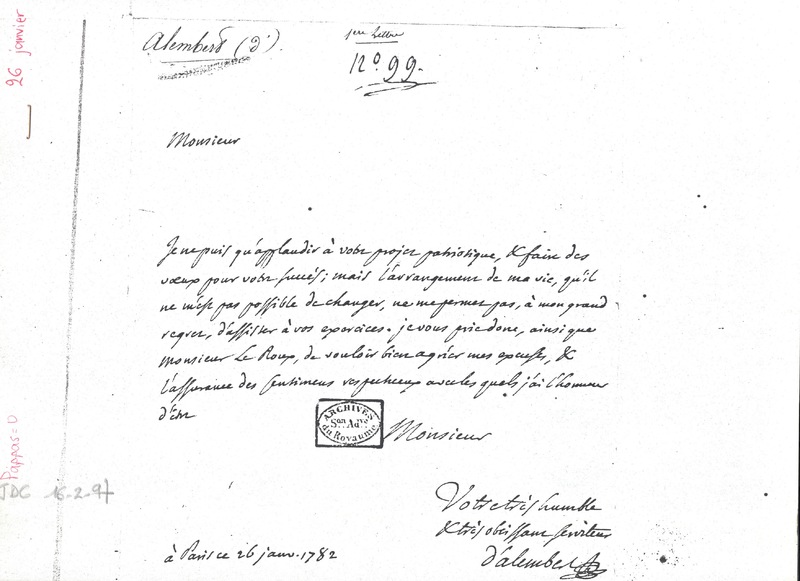 26 janvier
Alembert (d').
1ere Lettre
N.° 99.
Monsieur
Je ne puis qu'applaudir à votre projet patriotique, & faire des
vœux pour votre succès; mais l'arrangement de ma vie, qu'il
ne m'est pas possible de changer, ne me permet pas, à mon grand
regret, d'assister à vos exercices. je vous prie donc, ainsi que
Monsieur Le Roux, de vouloir bien agréer mes excuses, &
l'assurance des sentimens respectueux avec les quels j'ai l'honneur
d'être
ARCHIVES
Son Adve
du Royaume
Monsieur
Votre très humble
& très obéissant serviteur
d'alembert
à Paris ce 26 janv. 1782
Pappas = 0
JDC 16-2-97